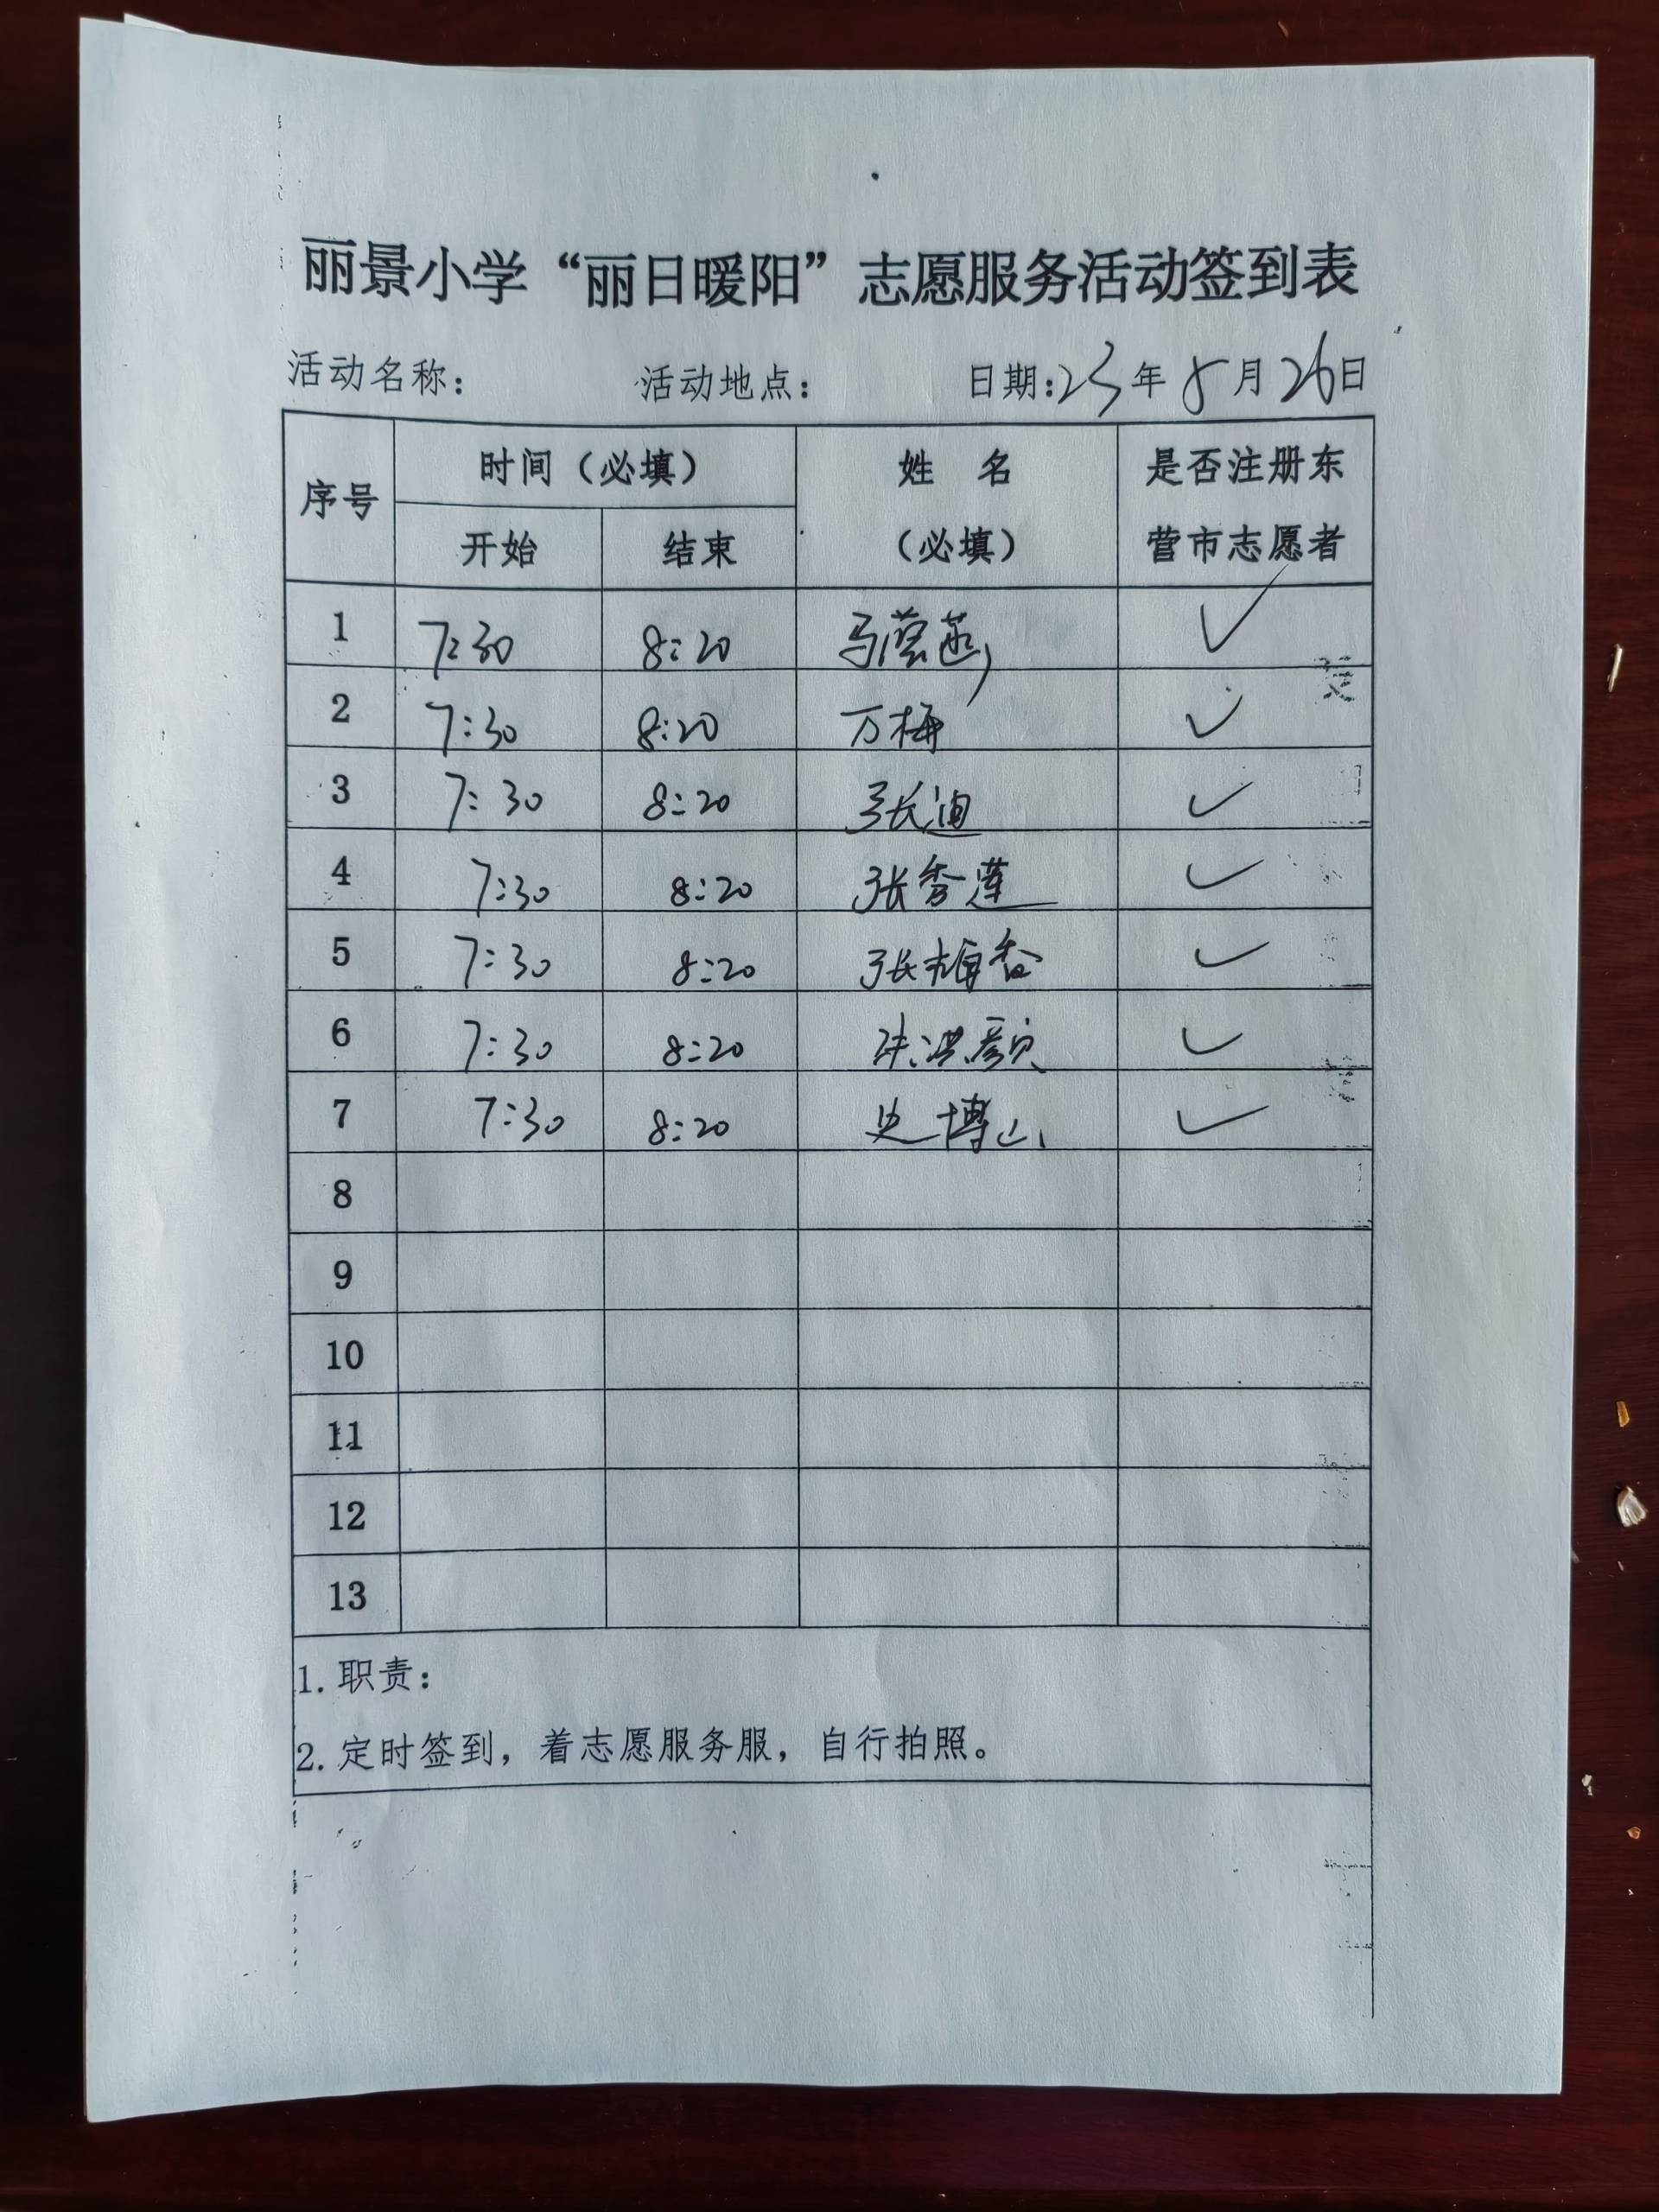 丽景小学“丽日暖阳”志愿服务活动签到表
活动名称： 活动地点： 日期:23年8月26日
序号 时间（必填） 姓 名（必填） 是否注册东营市志愿者
开始 结束
1 7:30 8:20 马莹
2 7:30 8:20 万梅
3 7:30 8:20 张迪
4 7:30 8:20 张香莲
5 7:30 8:20 张梅香
6 7:30 8:20 洪颜
7 7:30 8:20 史博
8
9
10
11
12
13
1. 职责：
2. 定时签到，着志愿服务服，自行拍照。